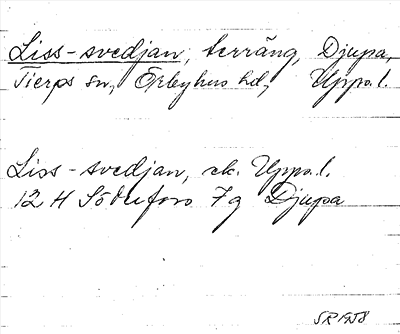 Liss-svedjan, terräng, Djupa,
Tierps sn, Örbyhus hd, Upps. l.
Liss-svedjan, ek. Upps. l.
12 H Söderfors 7g Djupa
SR 1958